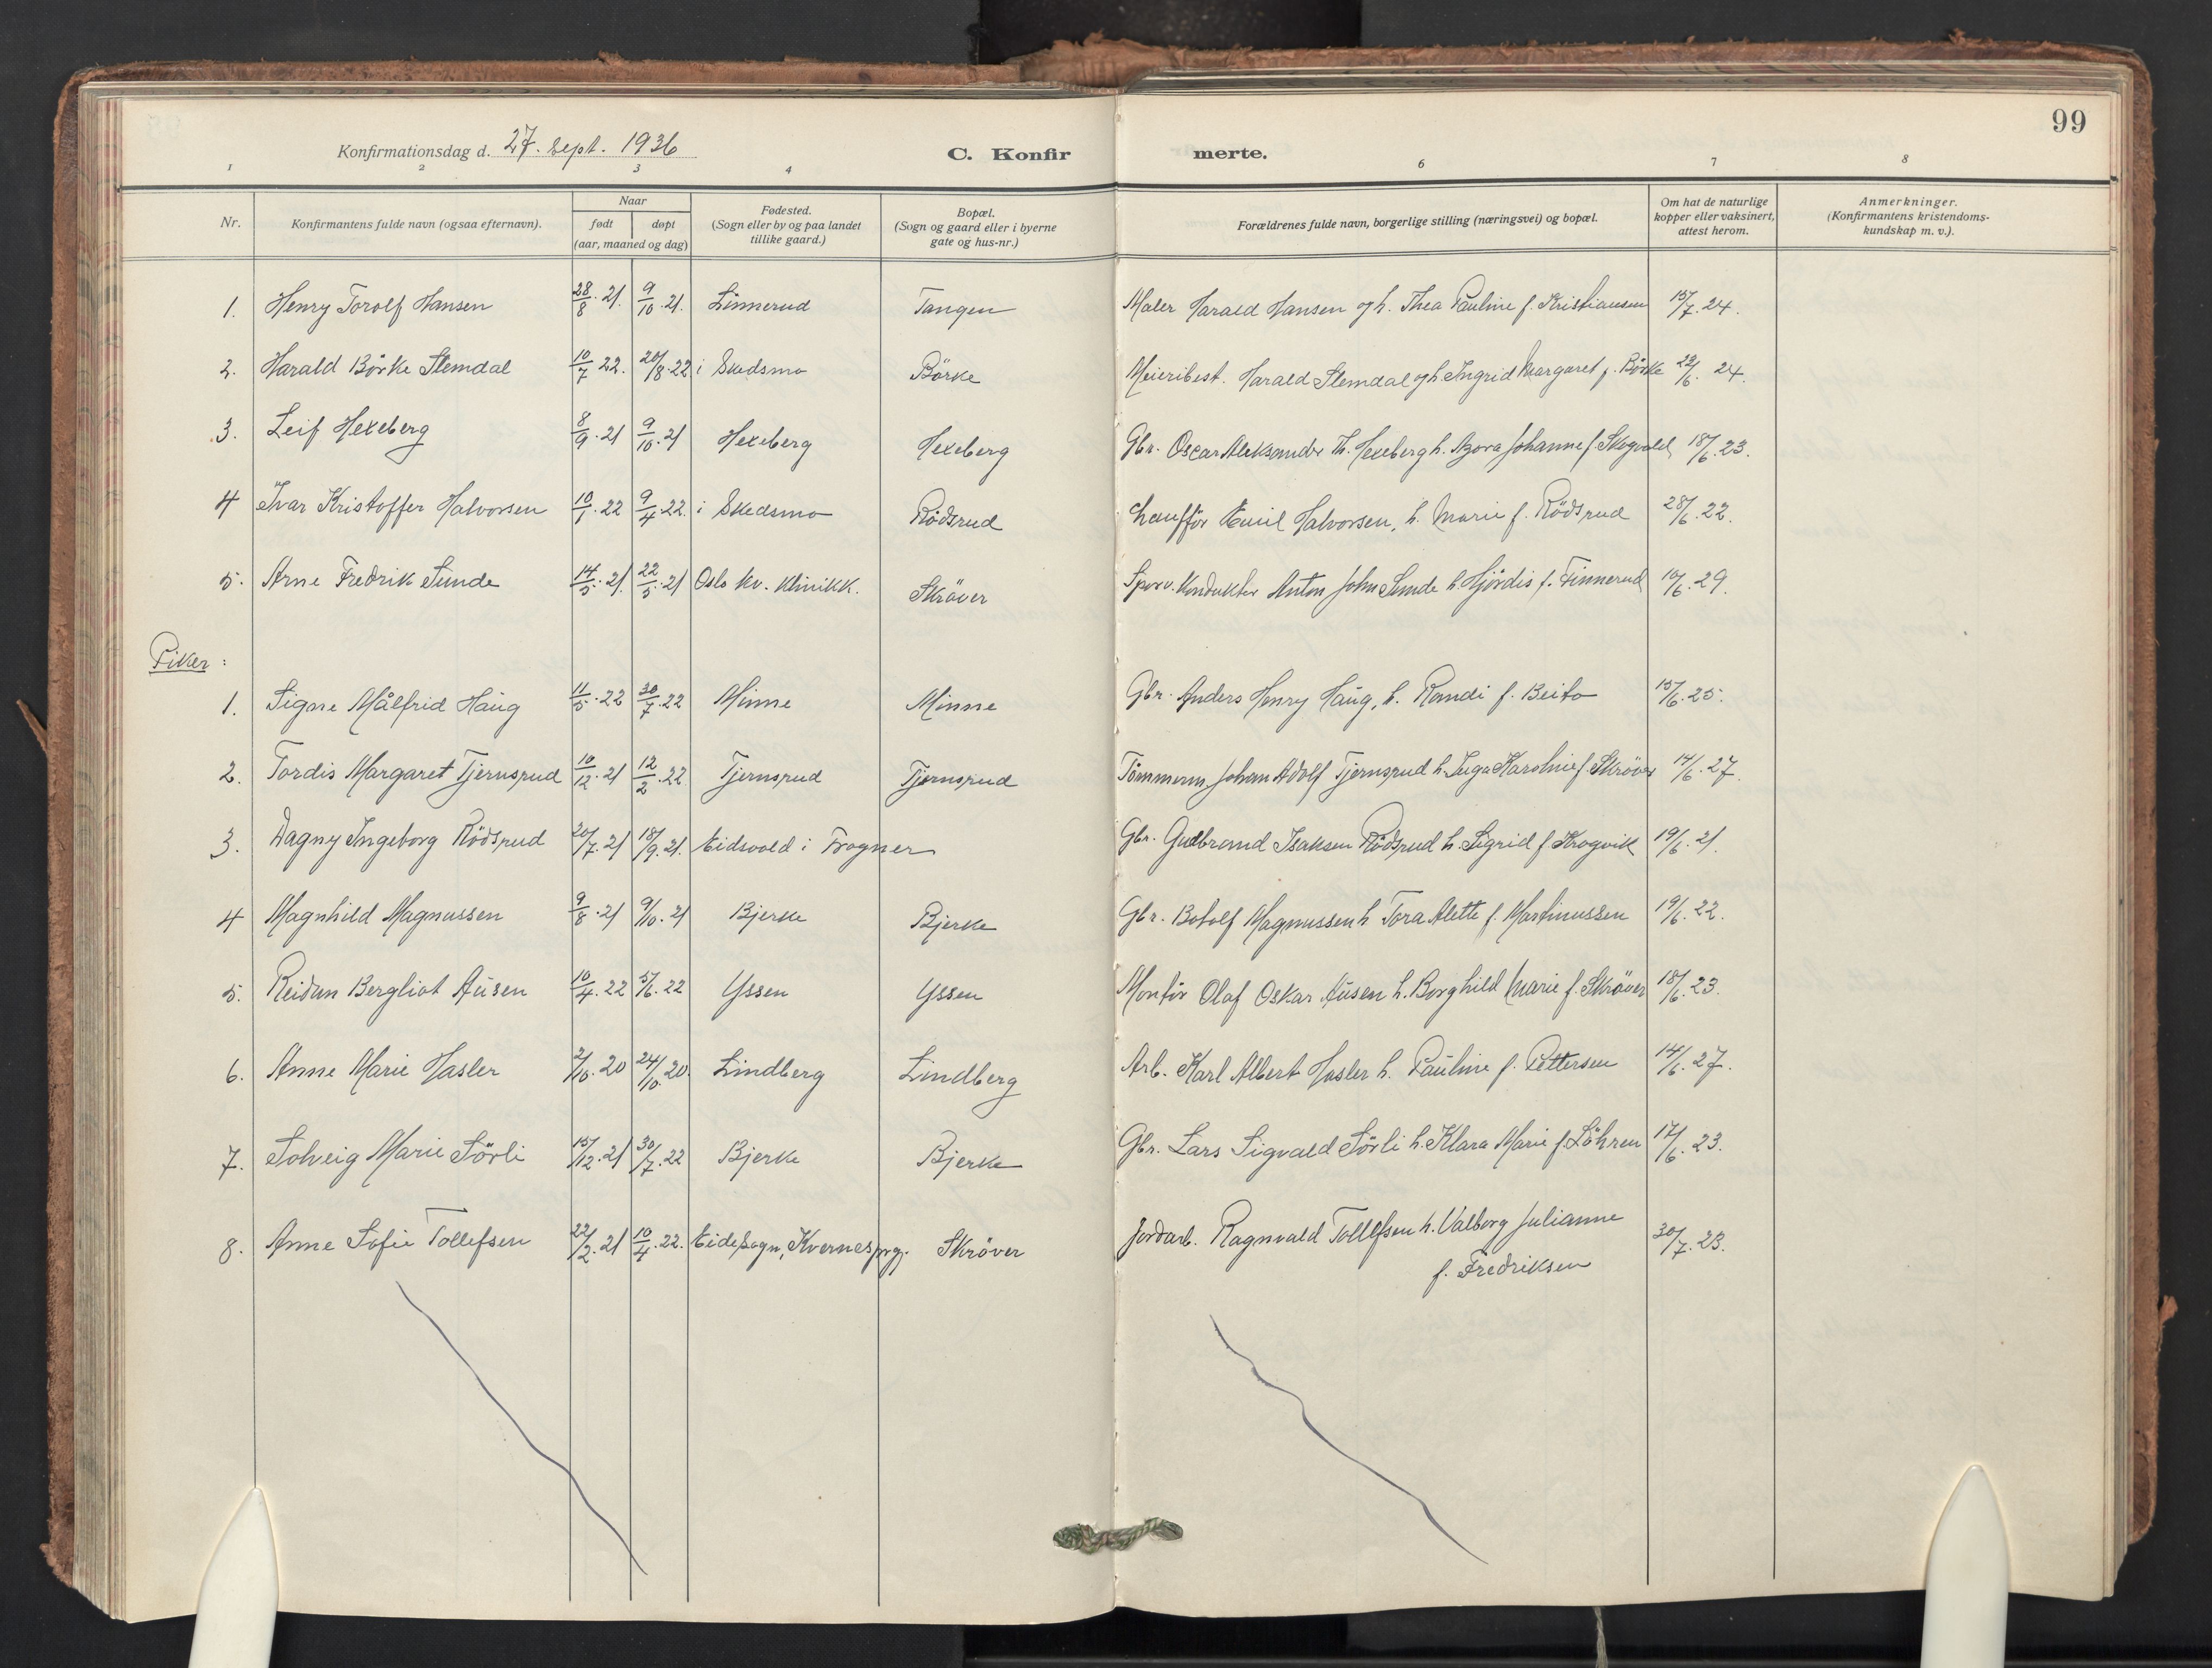 99
Konfirmationsdag d. 27. sept. 1936 C. Konfirmerte.
1 2 3 4 6 7 8
Nr. Konfirmantens fulde navn (ogsaa efternavn). Naar født døpt (aar, maaned og dag) Fødested. (Sogn eller by og paa landet tillike gaard.) Bopæl. (Sogn og gaard eller i byerne gate og hus-nr.) Forældrenes fulde navn, borgerlige stilling (næringsvei) og bopæl. Om hat de naturlige kopper eller vaksinert, attest herom. Anmerkninger. (Konfirmantens kristendoms-kundskap m. v.).
1. Henry Torolf Hansen 28/8. 21. 9/10. 21. Linnerud Tangen Maler Harald Hansen og h. Thea Pauline f. Kristiansen 15/7. 24.
2. Harald Börke Slemdal 10/7 22. 20/8. 22 i Skedsmo Börke Meieribest. Harald Slemdal og h. Ingrid Margaret f. Börke 22/6. 24.
3. Leif Hexeberg 8/9. 21 9/10. 21 Hexeberg Hexeberg Gbr. Oscar Aleksander Th. Hexeberg h. Agora Johanne f. Skogvold 18/6. 23.
4 Ivar Kristoffer Halvorsen 10/1. 22 9/4. 22. i Skedsmo Rödsrud Chaufför Emil Halvorsen, h. Marie f. Rödsrud 28/6. 22.
5. Arne Fredrik Sunde 14/5. 21. 22/5. 21 Oslo kv. klinikk. Skröver Sporv. konduktör Anton John Sunde h. Hjördis f. Finnerud 10/6. 29.
Piker:
1. Signe Målfrid Haug 11/5. 22 30/7. 22 Minne Minne Gbr. Anders Henry Haug, h. Randi f. Beito 15/6. 25.
2. Tordis Margaret Tjernsrud 10/12. 21 12/2. 22 Tjernsrud Tjernsrud Tömmerm. Johan Adolf Tjernsrud h. Inga Karoline f. Skröver 14/6. 27.
3. Dagny Ingeborg Rödsrud 20/7. 21 18/9. 21. Eidsvold i Frogner Gbr. Gudbrand Isaksen Rödsrud h. Sigrid f. Krogvik 19/6. 21.
4 Magnhild Magnussen 9/8. 21 9/10. 21 Bjerke Bjerke Gbr. Botolf Magnussen h Tora Alette f. Martinussen 19/6. 22.
5. Reidun Bergliot Ausen 10/4. 22 5/6. 22 Yssen Yssen Montör Olaf Oskar Ausen h. Borghild Marie f. Skröver 18/6. 23.
6. Anne Marie Hasler 2/10. 20 24/10. 20. Lindberg Lindberg Arb. Karl Albert Hasler h. Pauline f. Pettersen 14/6. 27.
7. Solveig Marie Sörli 15/12. 21 30/7. 22 Bjerke Bjerke Gbr. Lars Sigvald Sörli h. Klara Marie f. Löhren 17/6. 23.
8. Anne Sofie Tollefsen 22/2. 21 10/4. 22. Eide sogn, Kvernes prgj. Skröver Jordarb. Ragnvald Tollefsen h. Valborg Julianne
f. Fredriksen 30/7. 23.